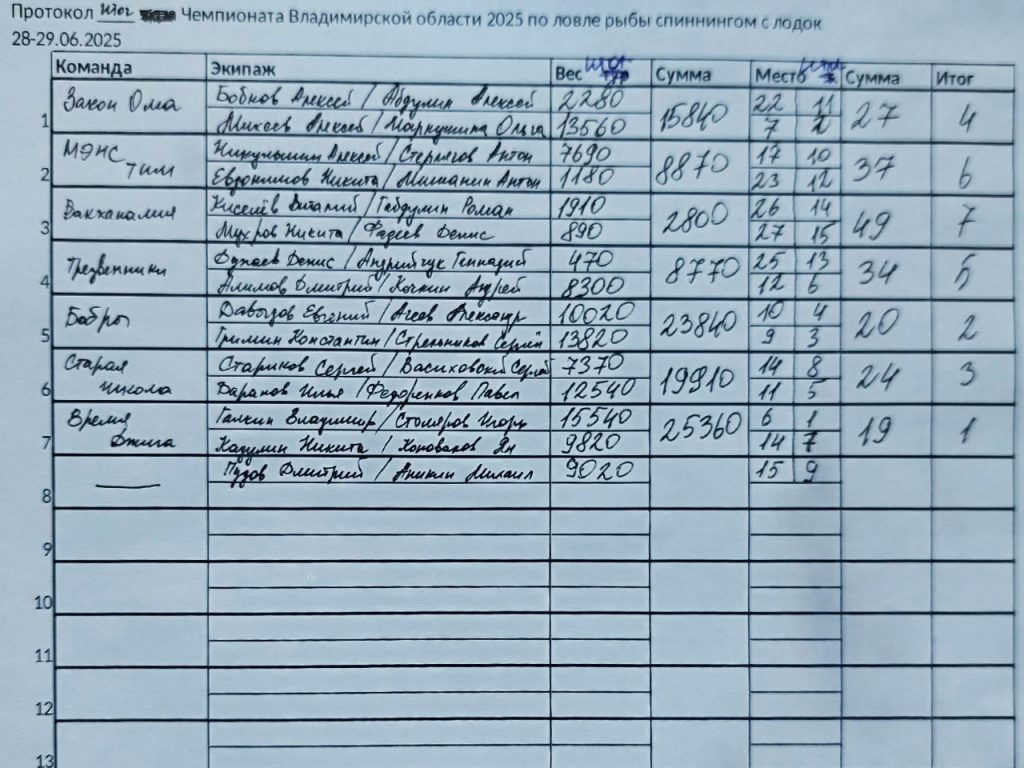 Протокол Итог Чемпионата Владимирской области 2025 по ловле рыбы спиннингом с лодок
28-29.06.2025
Команда Экипаж Вес Итог Сумма Место Итог Сумма Итог
Закон Ома Бобков Алексей / Абдулин Алексей 2280 15840 22 11 27 4
1 Михеев Алексей / Маркушина Ольга 13560 7 2
МЭНС Никульшин Алексей / Стерлягов Антон 7690 8870 17 10 37 6
2 Тим Евдокимов Никита / Мишанин Антон 1180 23 12
Вакханалия Киселёв Виталий / Габдулин Роман 1910 2800 26 14 49 7
3 Мухров Никита / Фадеев Денис 890 27 15
Трезвенники Дунаев Денис / Андрийчук Геннадий 470 8770 25 13 34 5
4 Алимов Дмитрий / Кочкин Андрей 8300 12 6
Бобры Давыдов Евгений / Агеев Александр 10020 23840 10 4 20 2
5 Гришин Константин / Стрельников Сергей 13820 9 3
Старая Стариков Сергей / Васиховский Сергей 7370 19910 14 8 24 3
6 школа Баранов Илья / Федоренков Павел 12540 11 5
Время Галкин Владимир / Столяров Игорь 15540 25360 6 1 19 1
7 Джига Кадулин Никита / Коновалов Ян 9820 14 7
Пудов Дмитрий / Аникин Михаил 9020 15 9
8
9
10
11
12
13